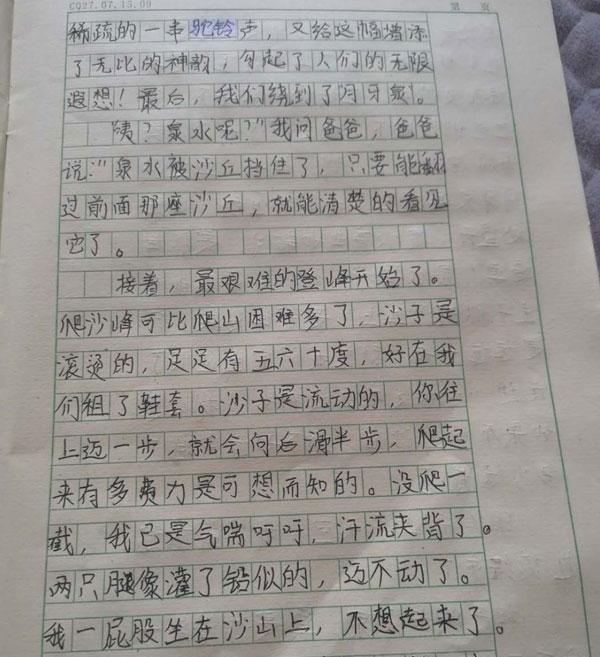 CQ27.07.15.09
第 页
稀疏的一串驼铃声，又给这幅增添
了无比的神韵，勾起了人们的无限
遐想！最后，我们绕到了月牙泉。
“咦？泉水呢？”我问爸爸，爸爸
说：“泉水被沙丘挡住了，只要能翻
过前面那座沙丘，就能清楚的看见
它了。
接着，最艰难的登峰开始了。
爬沙峰可比爬山困难多了，沙子是
滚烫的，足足有五六十度，好在我
们租了鞋套。沙子是流动的，你往
上迈一步，就会向后滑半步，爬起
来有多费力是可想而知的。没爬一
截，我已是气喘吁吁，汗流夹背了。
两只腿像灌了铅似的，迈不动了。
我一屁股坐在沙山上，不想起来了。